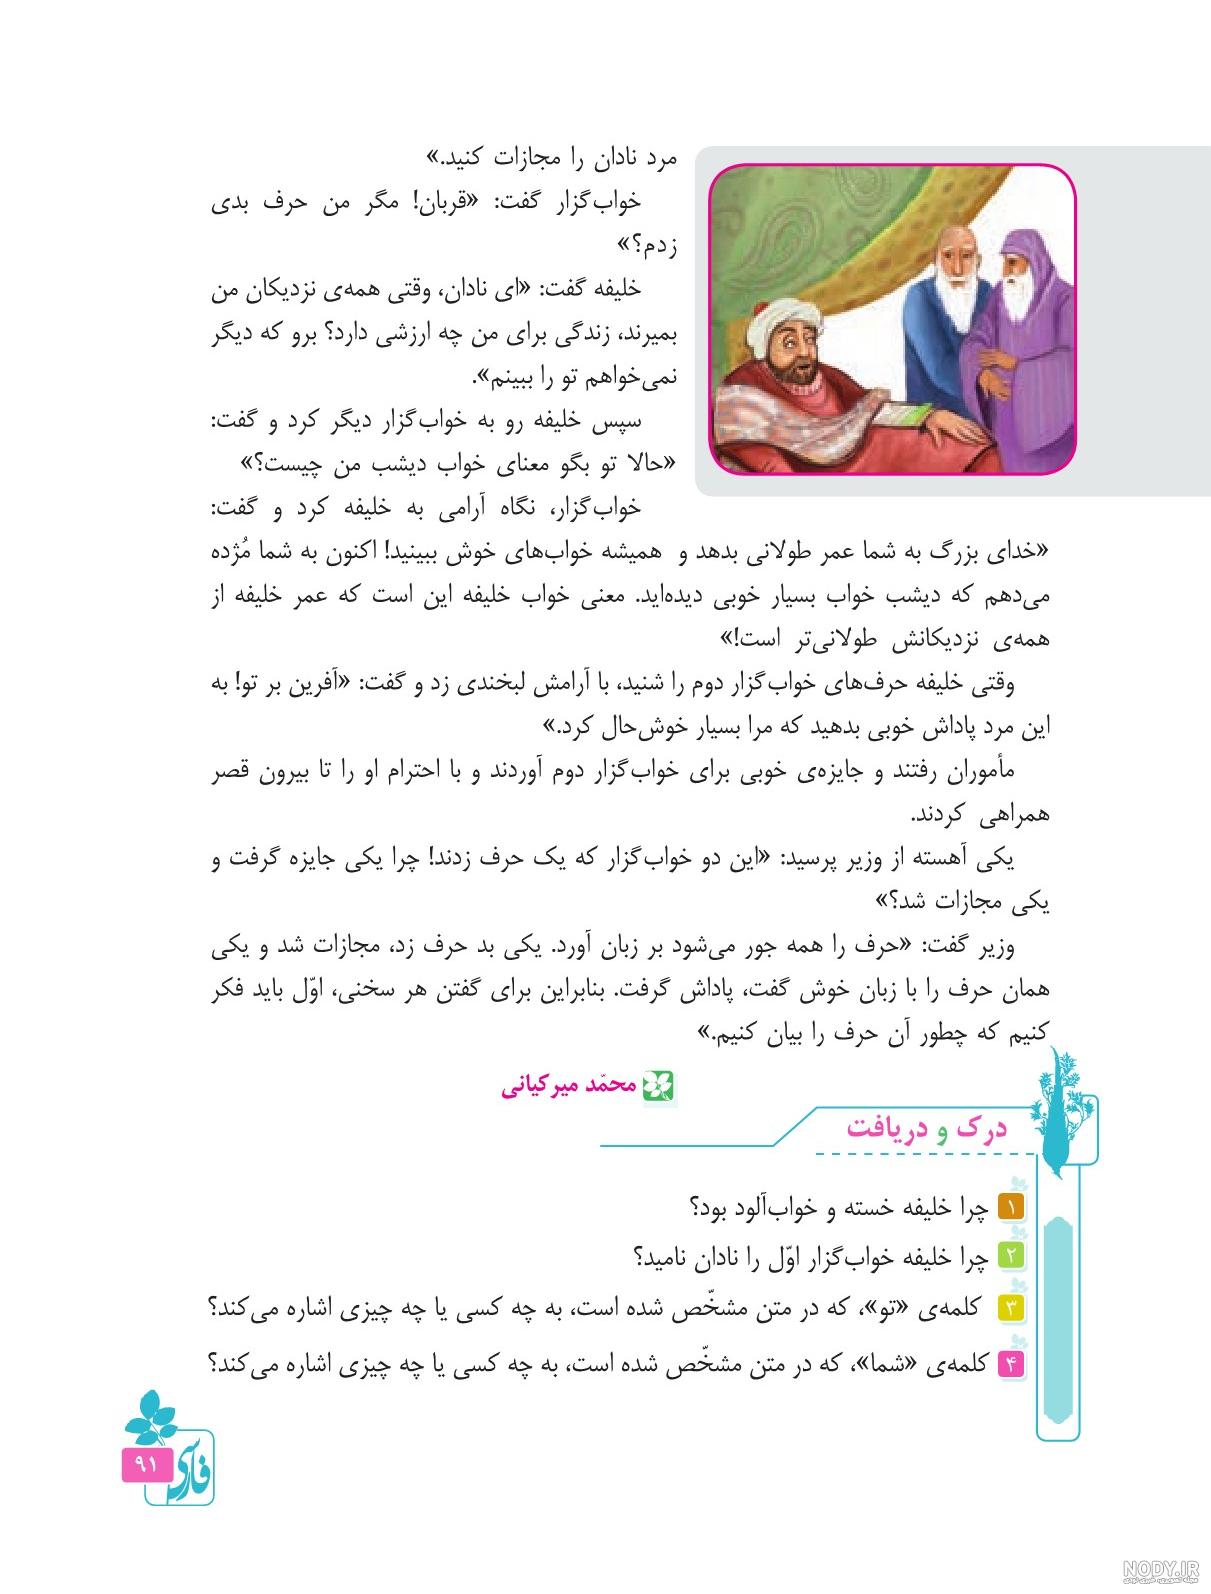 مرد نادان را مجازات کنید.»
خواب‌گزار گفت: «قربان! مگر من حرف بدی
زدم؟»
خلیفه گفت: «ای نادان، وقتی همه‌ی نزدیکان من
بمیرند، زندگی برای من چه ارزشی دارد؟ برو که دیگر
نمی‌خواهم تو را ببینم».
سپس خلیفه رو به خواب‌گزار دیگر کرد و گفت:
«حالا تو بگو معنای خواب دیشب من چیست؟»
خواب‌گزار، نگاه آرامی به خلیفه کرد و گفت:
«خدای بزرگ به شما عمر طولانی بدهد و همیشه خواب‌های خوش ببینید! اکنون به شما مُژده
می‌دهم که دیشب خواب بسیار خوبی دیده‌اید. معنی خواب خلیفه این است که عمر خلیفه از
همه‌ی نزدیکانش طولانی‌تر است!»
وقتی خلیفه حرف‌های خواب‌گزار دوم را شنید، با آرامش لبخندی زد و گفت: «آفرین بر تو! به
این مرد پاداش خوبی بدهید که مرا بسیار خوش‌حال کرد.»
مأموران رفتند و جایزه‌ی خوبی برای خواب‌گزار دوم آوردند و با احترام او را تا بیرون قصر
همراهی کردند.
یکی آهسته از وزیر پرسید: «این دو خواب‌گزار که یک حرف زدند! چرا یکی جایزه گرفت و
یکی مجازات شد؟»
وزیر گفت: «حرف را همه جور می‌شود بر زبان آورد. یکی بد حرف زد، مجازات شد و یکی
همان حرف را با زبان خوش گفت، پاداش گرفت. بنابراین برای گفتن هر سخنی، اوّل باید فکر
کنیم که چطور آن حرف را بیان کنیم.»
محمّد میرکیانی
درک و دریافت
۱ چرا خلیفه خسته و خواب‌آلود بود؟
۲ چرا خلیفه خواب‌گزار اوّل را نادان نامید؟
۳ کلمه‌ی «تو»، که در متن مشخّص شده است، به چه کسی یا چه چیزی اشاره می‌کند؟
۴ کلمه‌ی «شما»، که در متن مشخّص شده است، به چه کسی یا چه چیزی اشاره می‌کند؟
فارسی
۹۱
NODY.IR